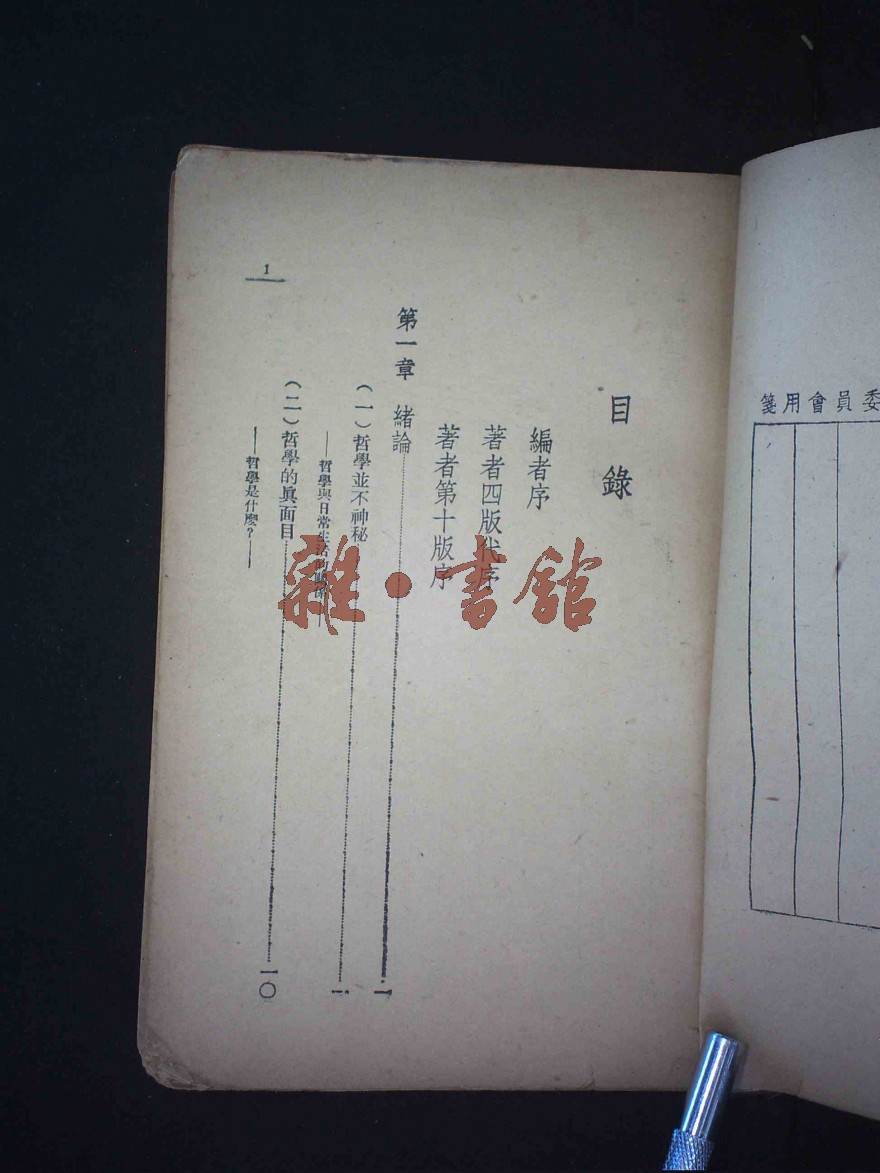 委員會用箋
目錄
編者序
著者四版代序
著者第十版序
第一章 緒論………一
（一）哲學並不神秘………一
——哲學與日常生活的關係——
（二）哲學的眞面目………一〇
——哲學是什麼？——
1
雜·書館